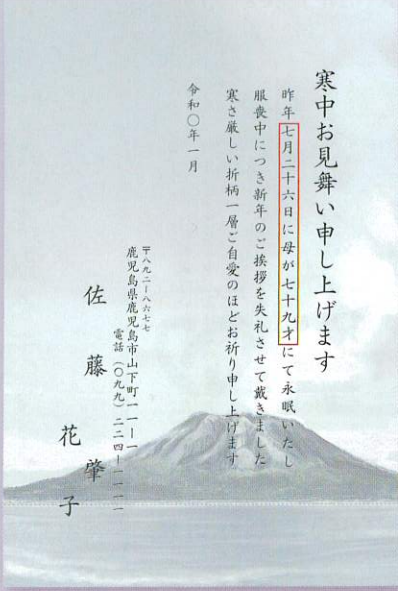 寒中お見舞い申し上げます
昨年七月二十六日に母が七十九才にて永眠いたし
服喪中につき新年のご挨拶を失礼させて戴きました
寒さ厳しい折柄一層ご自愛のほどお祈り申し上げます
令和〇年一月
〒八九二ー八六七七
鹿児島県鹿児島市山下町一一ー一
電話(〇九九)二二四ー一一一一
佐藤 肇
花子